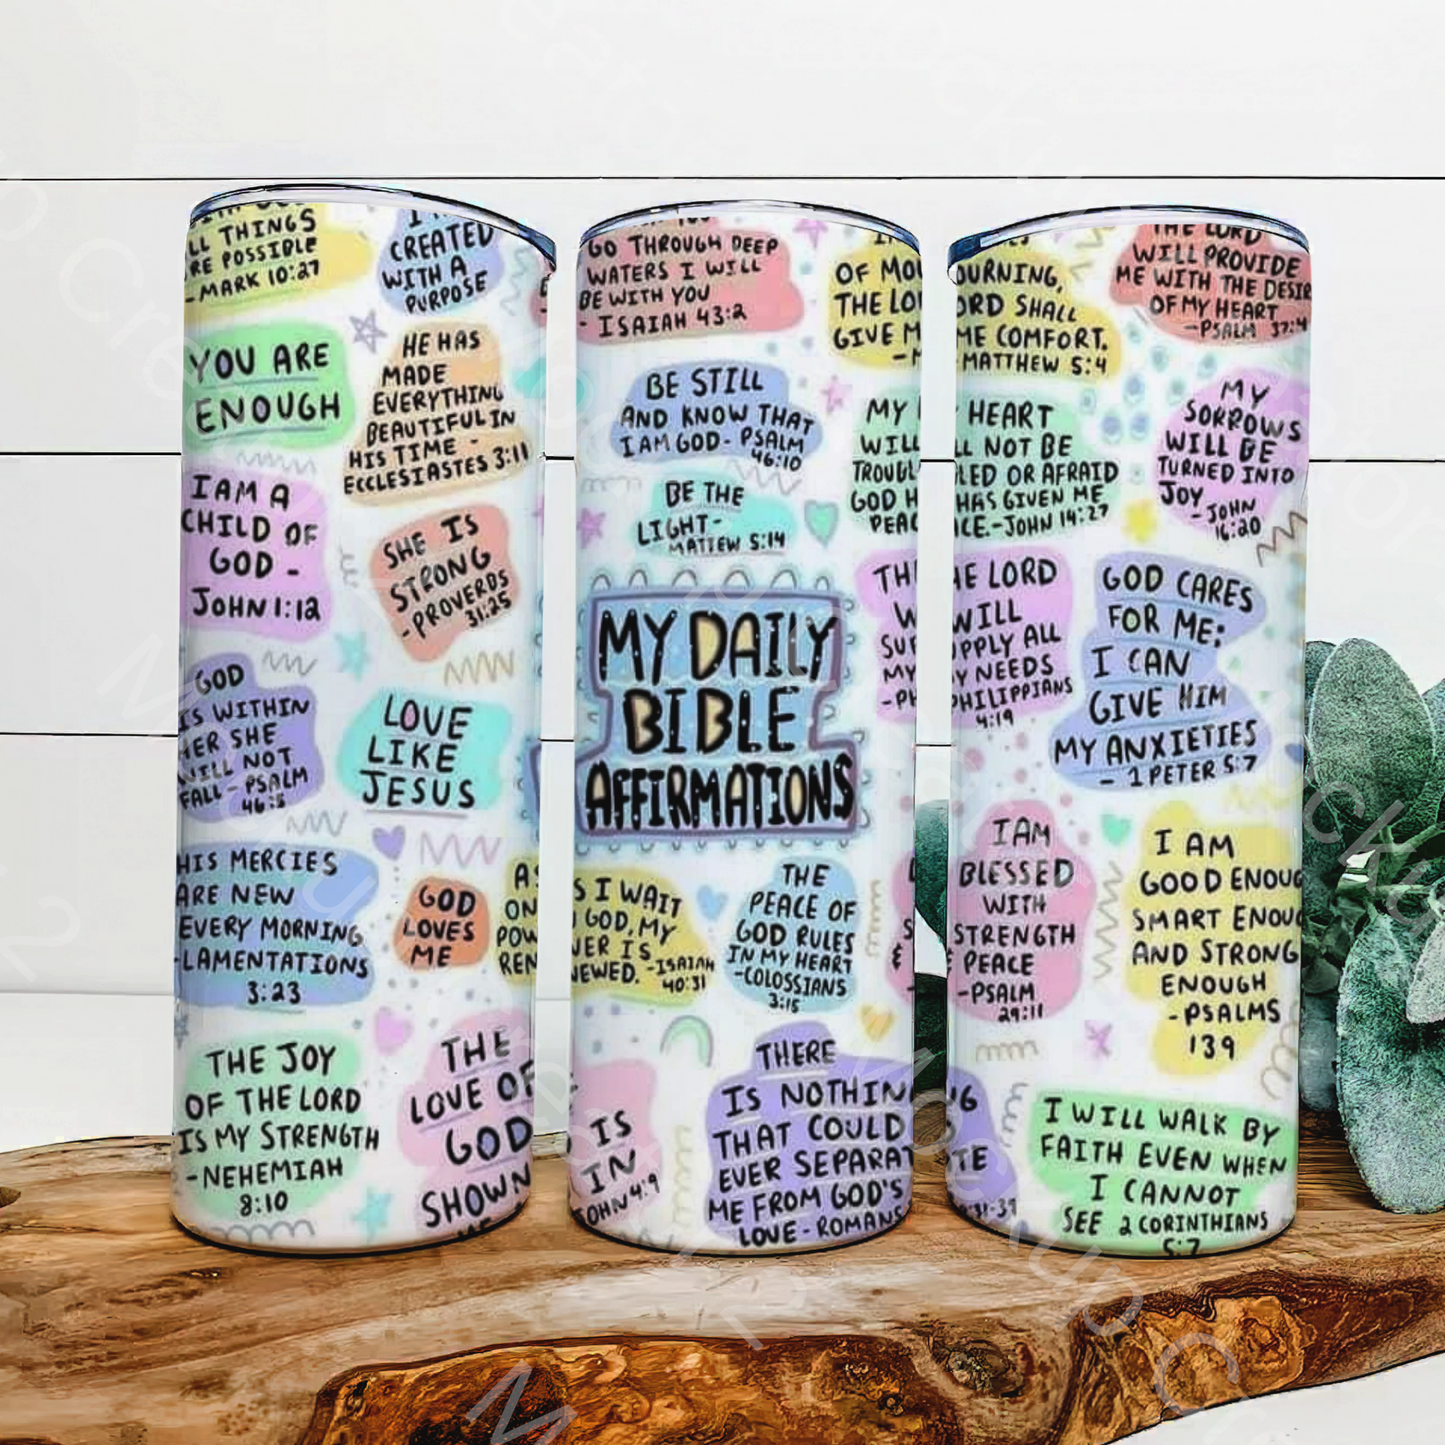 ALL THINGS
ARE POSSIBLE
-MARK 10:27
CREATED
WITH A
PURPOSE
YOU ARE
ENOUGH
HE HAS
MADE
EVERYTHING
BEAUTIFUL IN
HIS TIME -
ECCLESIASTES 3:11
I AM A
CHILD OF
GOD -
JOHN 1:12
SHE IS
STRONG
-PROVERBS
31:25
GOD
IS WITHIN
HER SHE
WILL NOT
FALL - PSALM
46:5
LOVE
LIKE
JESUS
HIS MERCIES
ARE NEW
EVERY MORNING
-LAMENTATIONS
3:23
GOD
LOVES
ME
AS
ON
POW
REN
THE JOY
OF THE LORD
IS MY STRENGTH
-NEHEMIAH
8:10
THE
LOVE OF
GOD
SHOWN
GO THROUGH DEEP
WATERS I WILL
BE WITH YOU
- ISAIAH 43:2
OF MOU
THE LO
GIVE M
BE STILL
AND KNOW THAT
I AM GOD - PSALM
46:10
MY
WILL
TROUBL
GOD H
PEAC
BE THE
LIGHT -
MATTEW 5:14
TH
W
SU
MY
-PH
MY DAILY
BIBLE
AFFIRMATIONS
S I WAIT
GOD, MY
WER IS
NEWED. -ISAIAH
40:31
THE
PEACE OF
GOD RULES
IN MY HEART
-COLOSSIANS
3:15
IS
IN
JOHN 4:9
THERE
IS NOTHIN
THAT COULD
EVER SEPARAT
ME FROM GOD'S
LOVE - ROMANS
OURNING,
ORD SHALL
ME COMFORT.
MATTHEW 5:4
THE LORD
WILL PROVIDE
ME WITH THE DESIR
OF MY HEART
-PSALM 37:4
HEART
LL NOT BE
LED OR AFRAID
HAS GIVEN ME
ACE.-JOHN 14:27
MY
SORROWS
WILL BE
TURNED INTO
JOY
-JOHN
16:20
HE LORD
WILL
PPLY ALL
Y NEEDS
PHILIPPIANS
4:19
GOD CARES
FOR ME;
I CAN
GIVE HIM
MY ANXIETIES
- 1 PETER 5:7
I AM
BLESSED
WITH
STRENGTH
PEACE
-PSALM
29:11
I AM
GOOD ENOUG
SMART ENOUG
AND STRONG
ENOUGH
-PSALMS
139
NG
TE
31-39
I WILL WALK BY
FAITH EVEN WHEN
I CANNOT
SEE 2 CORINTHIANS
5:7